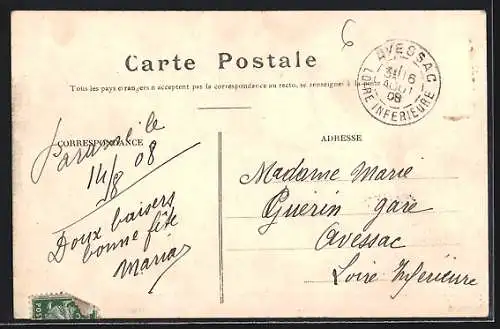 6
Carte Postale
Tous les pays étrangers n'acceptent pas la correspondance au recto, se renseigner à la poste
AVESSAC
16
AOUT
08
LOIRE INFERIEURE
CORRESPONDANCE
ADRESSE
le
14/8 08
Doux baisers
bonne fête
Maria
Madame Marie
Guerin gare
Avessac
Loire Inférieure